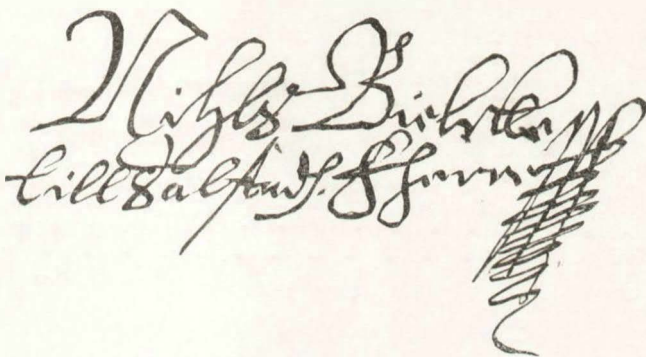 Nihls Bielcke
till Salstadh. Fherre